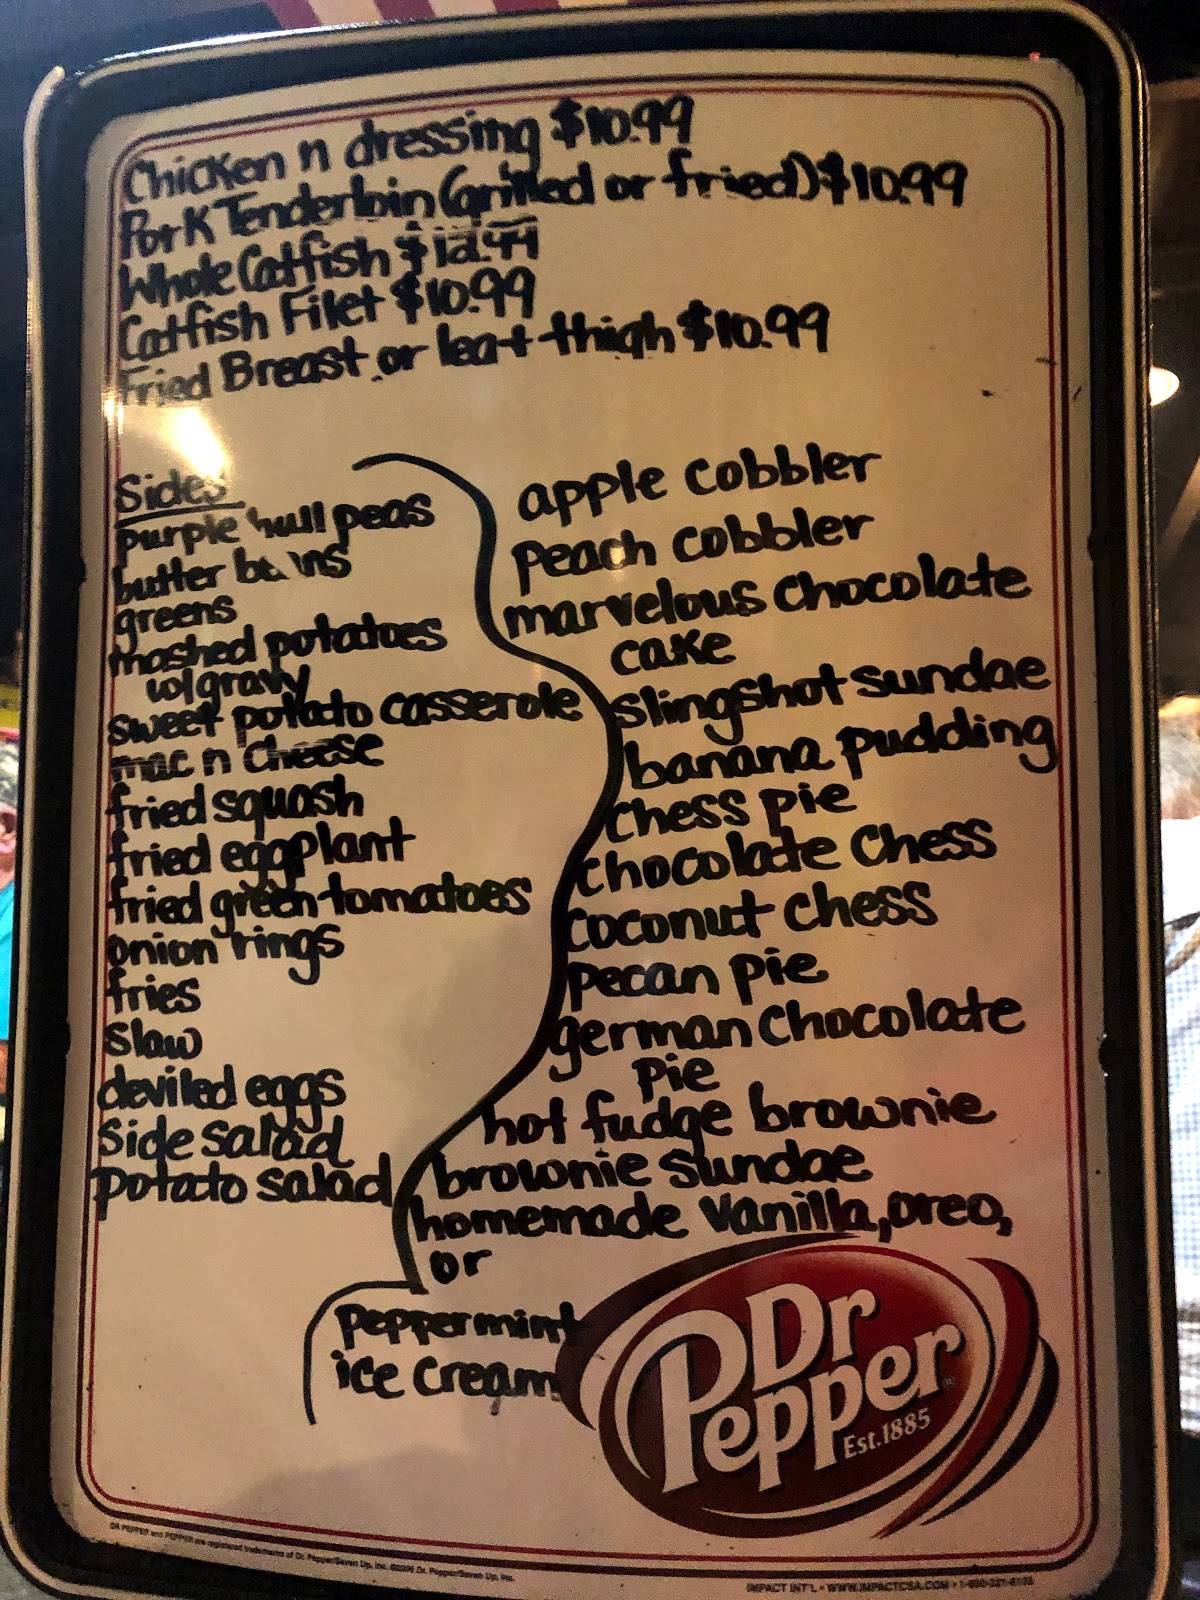 Chicken n dressing $10.99
Pork Tenderloin (grilled or fried) $10.99
Whole Catfish $12.99
Catfish Filet $10.99
Fried Breast or leg + thigh $10.99
Sides
purple hull peas
butter beans
greens
mashed potatoes
w/gravy
sweet potato casserole
mac n cheese
fried squash
fried eggplant
fried green tomatoes
onion rings
fries
slaw
deviled eggs
side salad
potato salad
apple cobbler
peach cobbler
marvelous chocolate
cake
slingshot sundae
banana pudding
chess pie
chocolate chess
coconut chess
pecan pie
german chocolate
pie
hot fudge brownie
brownie sundae
homemade vanilla, oreo,
or
peppermint
ice cream
Dr
Pepper
Est.1885
DR PEPPER and PEPPER are registered trademarks of Dr. Pepper/Seven Up, Inc. ©2006 Dr. Pepper/Seven Up, Inc.
IMPACT INT'L • WWW.IMPACTCSA.COM •